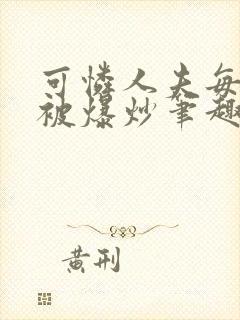 可怜人夫每
被爆炒笔趣
黄刑